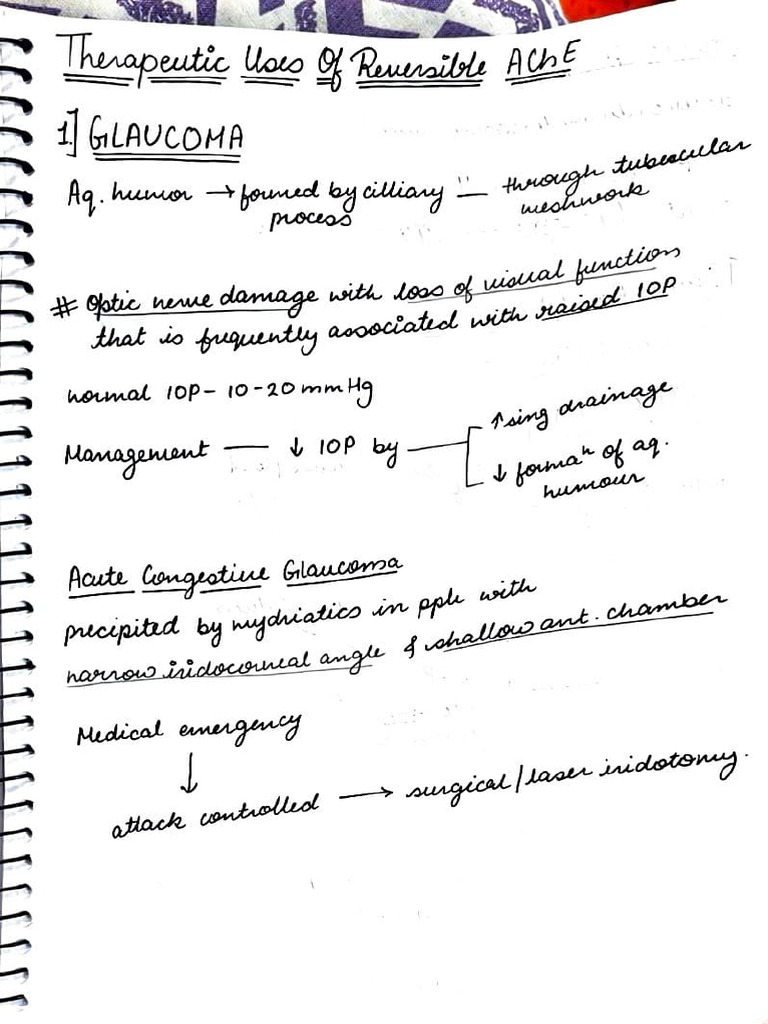 Therapeutic Uses Of Reversible AChE
1.] GLAUCOMA
Aq. humor → formed by cilliary " — through tubecular
process meshwork
# Optic nerve damage with loss of visual function
that is frequently associated with raised IOP
normal IOP - 10-20 mmHg
Management — ↓ IOP by — ↑sing drainage
↓ formaⁿ of aq.
humour
Acute Congestive Glaucoma
precipited by mydriatics in pple with
narrow iridocorneal angle & shallow ant. chamber
Medical emergency
↓
attack controlled → surgical / laser iridotomy.